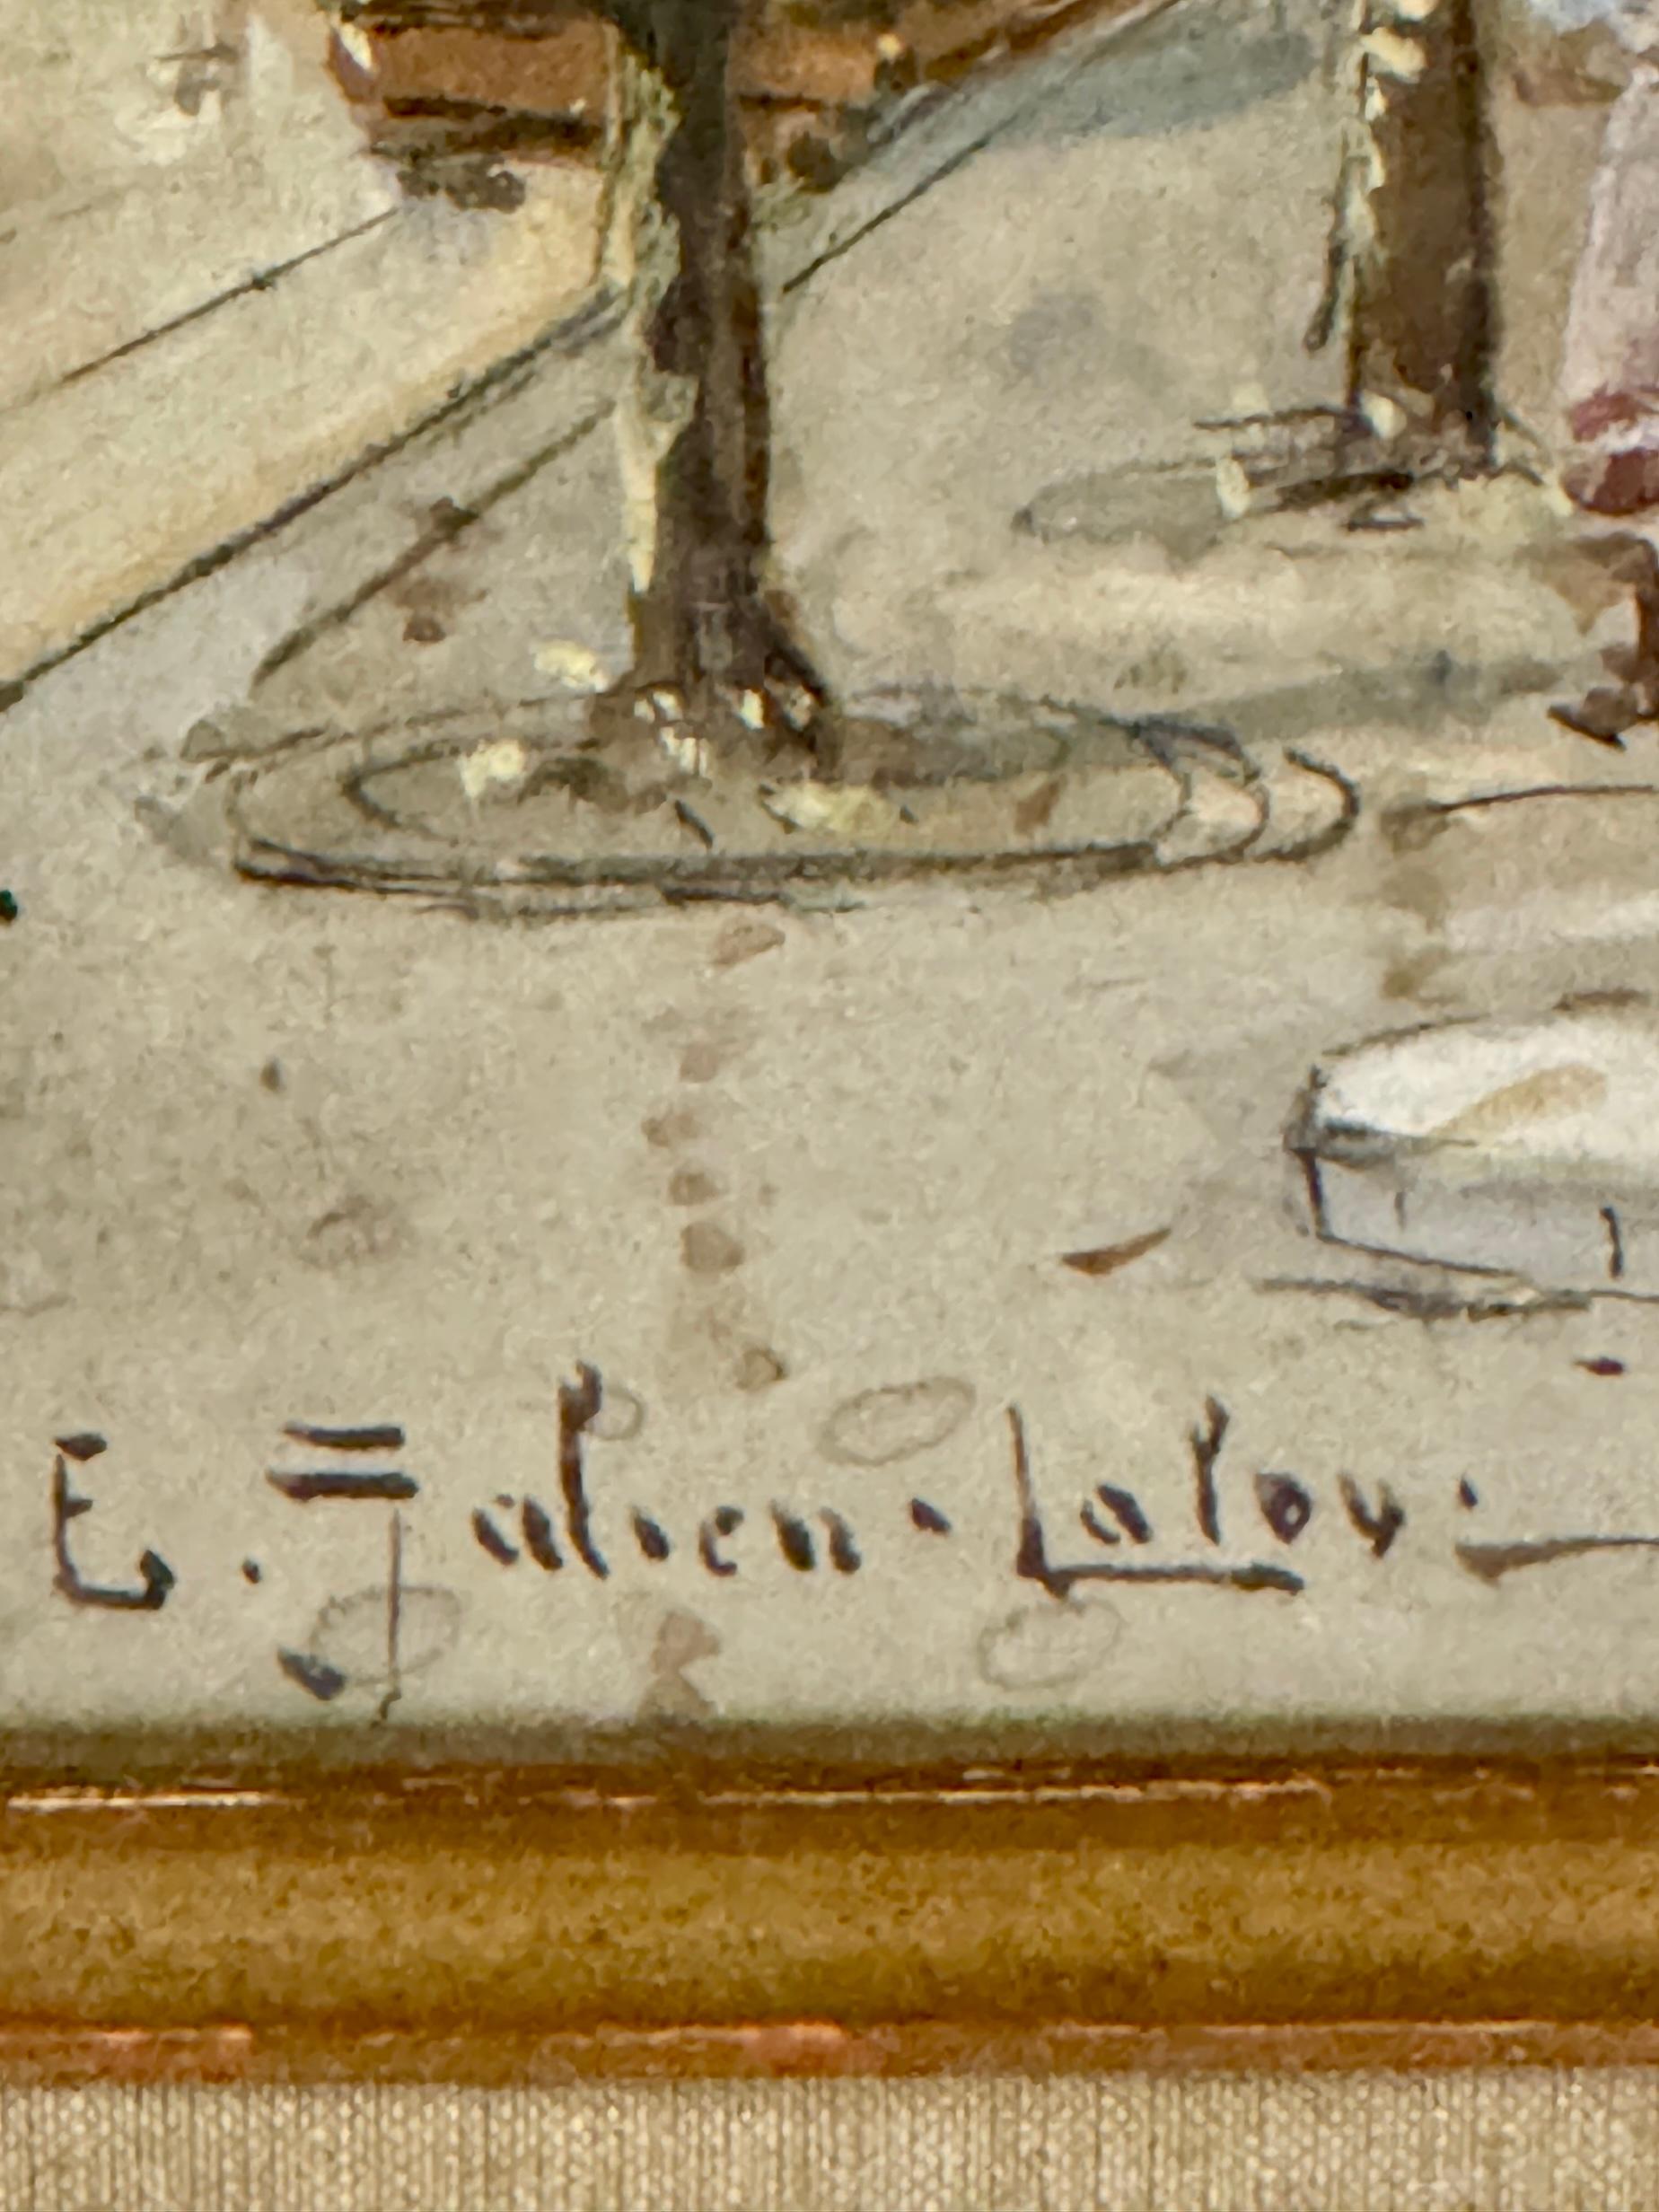 E. Galien-Laloy.